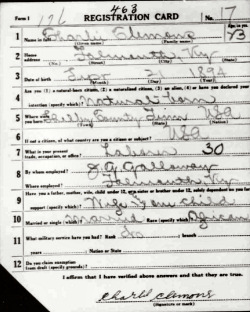 463
Form 1 REGISTRATION CARD No. 17
126
1 Name in full Charlie Clemons Age, in yrs. 23
(Given name) (Family name)
2 Home address Ky
3 Date of birth Sept 2 1894
4 Are you (1) a natural-born citizen, (2) a naturalized citizen, (3) an alien, (4) or have you declared your
intention (specify which)? Natural born
5 Where were you born? County USA
6 If not a citizen, of what country are you a citizen or subject? USA
7 What is your present trade, occupation, or office? Laborer 30
8 By whom employed? J. Galloway
Where employed? Ky
9 Have you a father, mother, wife, child under 12, or a sister or brother under 12, solely dependent on you for
support (specify which)? Wife child
10 Married or single (which)? Married Race (specify which)? African
11 What military service have you had? Rank No ; branch
years ; Nation or State
12 Do you claim exemption
from draft (specify grounds)?
I affirm that I have verified above answers and that they are true.
Charli Clemons